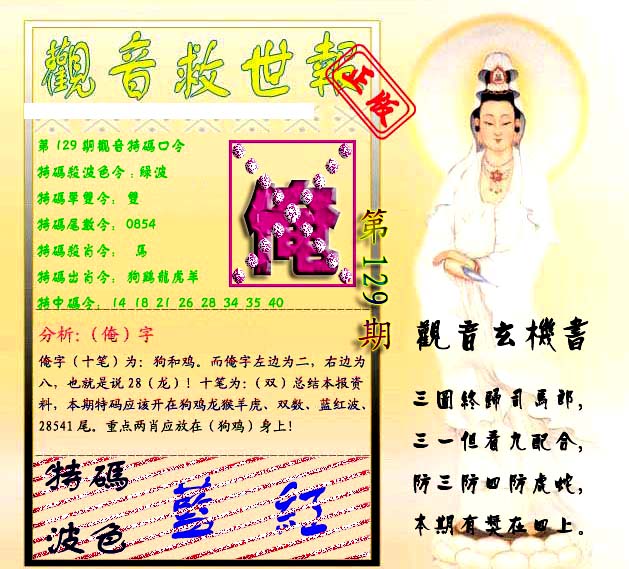 觀音救世報
正版
第129期觀音特碼口令
特碼殺波色令：綠波
特碼單雙令： 雙
特碼尾數令： 0854
特碼殺肖令： 馬
特碼出肖令： 狗鷄龍虎羊
特中碼令： 14 18 21 26 28 34 35 40
俺
第129期
分析:（俺）字
俺字（十笔）为：狗和鸡。而俺字左边为二，右边为
八，也就是说28（龙）！十笔为：（双）总结本报资
料，本期特码应该开在狗鸡龙猴羊虎、双数、蓝红波、
28541尾。重点两肖应放在（狗鸡）身上！
特碼
波色
藍 紅
觀音玄機書
三國終歸司馬郎，
三一但看九配合，
防三防四防虎蛇，
本期有獎在四上。